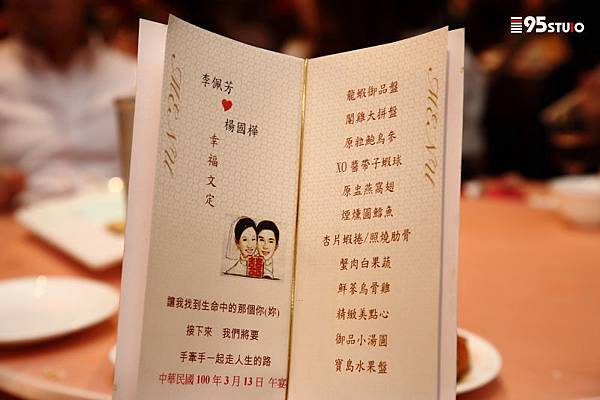 95STUIO
MENU
李佩芳
楊國樺
幸福文定
讓我找到生命中的那個你(妳)
接下來 我們將要
手牽手一起走人生的路
中華民國 100 年 3 月 13 日 午宴
MENU
龍蝦御品盤
閹雞大拼盤
原粒鮑烏參
XO 醬帶子蝦球
原盅燕窩翅
煙燻圓鱈魚
杏片蝦捲/照燒肋骨
蟹肉白果蔬
鮮蔘烏骨雞
精緻美點心
御品小湯圓
寶島水果盤